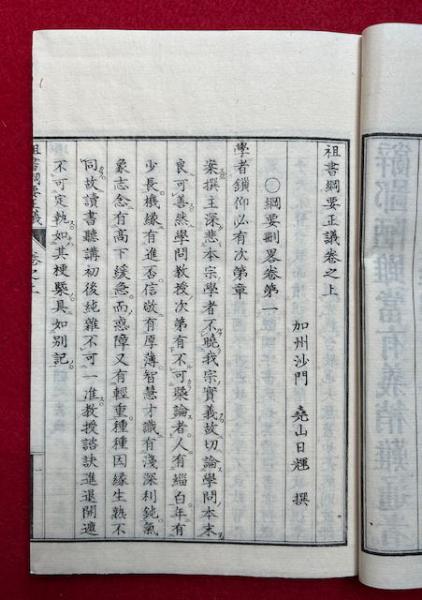 祖書綱要正議卷之上
加州沙門 堯山日輝 撰
〇綱要刪畧卷第一
學者鎖仰必有次第章
案撰主深悲本宗學者不曉我宗實義故切論學問本末
良可善然學問教授次第有不可槩論者人有緇白年有
少長機緣有進否信敬有厚薄智慧才識有淺深利鈍氣
象志念有高下緩急而惑障又有輕重種種因緣生熟不
同故讀書聽講初後純雜不可一准教授諮訣進退開遮
不可定執如其梗槩具如別記
祖書綱要正議 卷之上